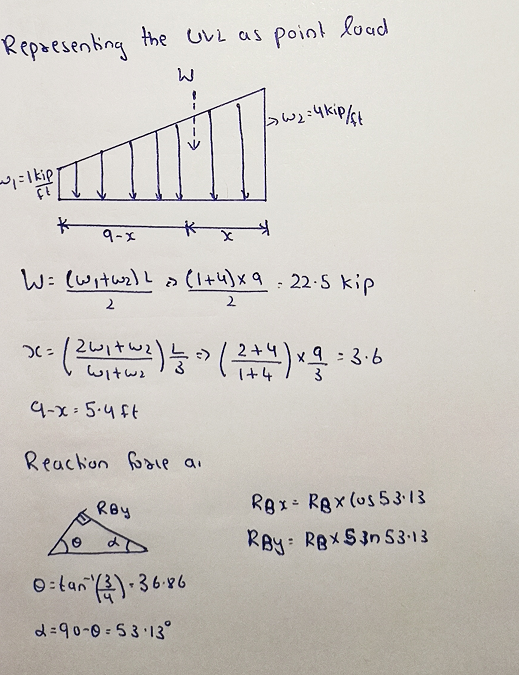 Representing the UVL as point load
W
w2=4kip/ft
w1=1kip/ft
9-x
x
W = (w1+w2)L/2 => (1+4)x9/2 = 22.5 kip
x = (2w1+w2/w1+w2) L/3 => (2+4/1+4) x 9/3 = 3.6
9-x = 5.4 ft
Reaction force a
RBy
θ
α
RBx = RB x Cos 53.13
RBy = RB x Sin 53.13
θ = tan⁻¹(3/4) = 36.86
α = 90-θ = 53.13°